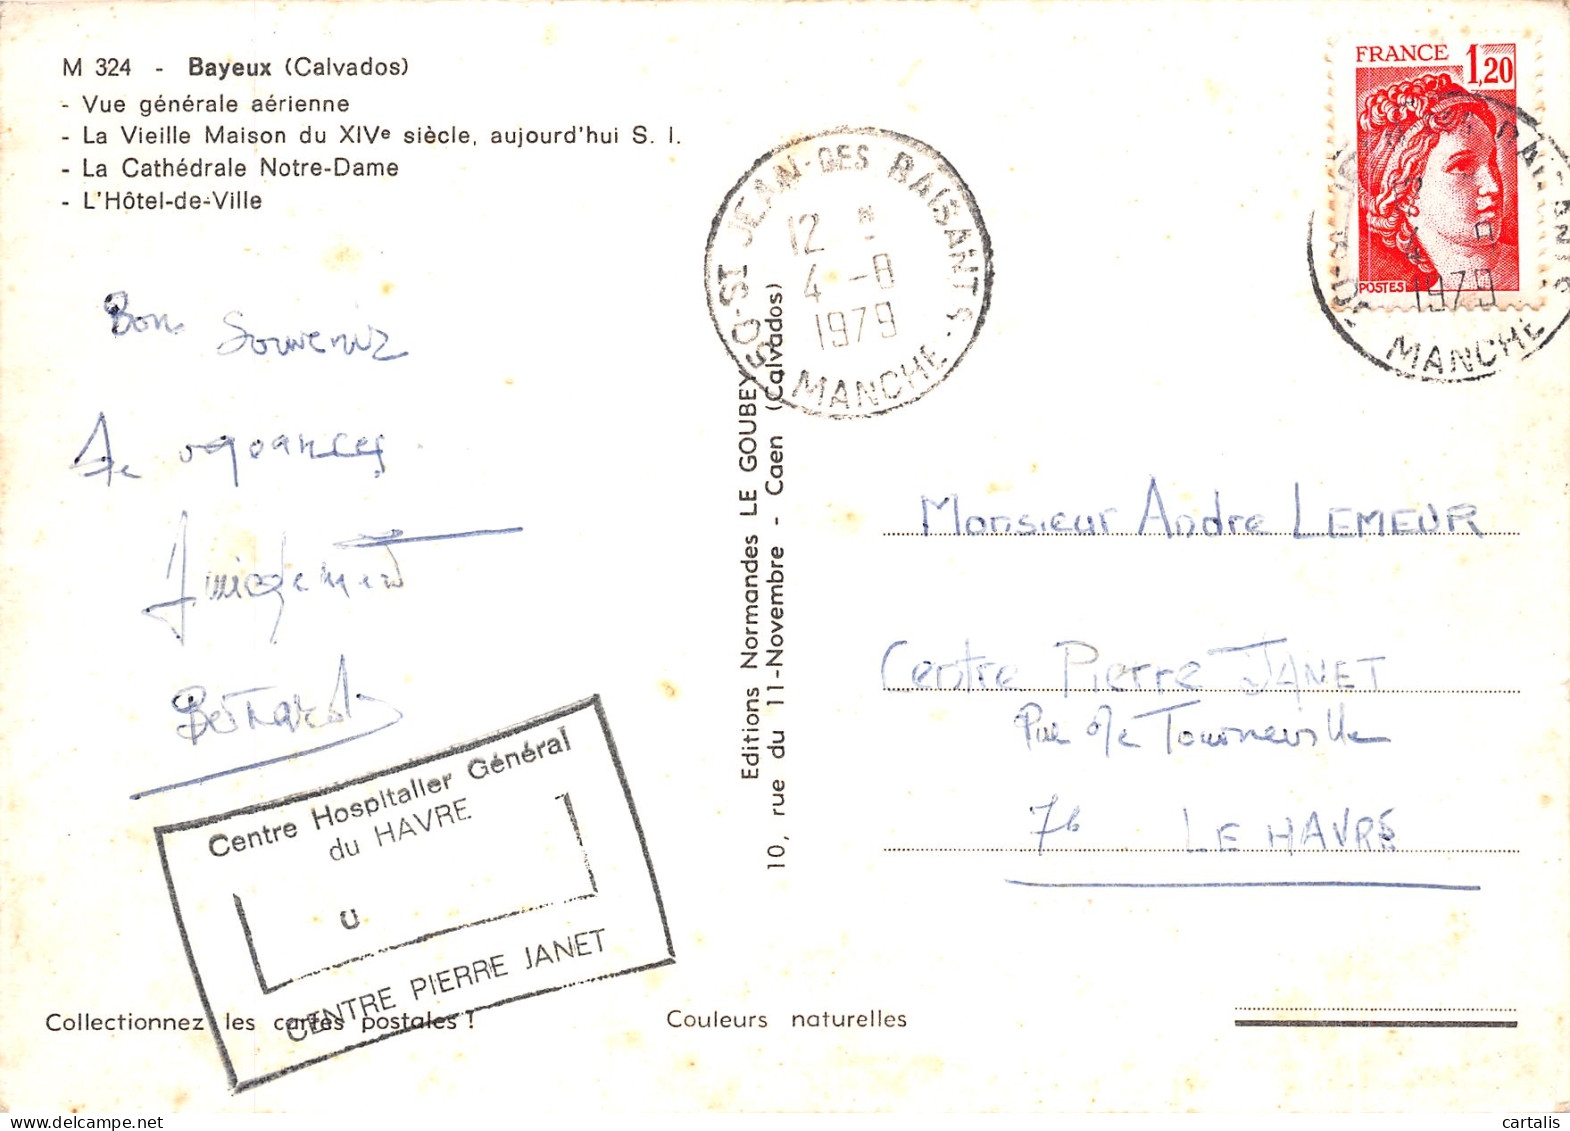 M 324 - Bayeux (Calvados)
- Vue générale aérienne
- La Vieille Maison du XIVe siècle, aujourd'hui S. I.
- La Cathédrale Notre-Dame
- L'Hôtel-de-Ville
FRANCE 1,20
POSTES
50-ST JEAN-DES RAISANTS
12
4-8
1979
MANCHE
1979
MANCHE
Bon Souvenir
De vacances
Amicalement
Bernard
Editions Normandes LE GOUBEY
10, rue du 11-Novembre - Caen (Calvados)
Monsieur Andre LEMEUR
Centre Pierre JANET
Rue de Tourneville
76 LE HAVRE
Centre Hospitalier Général
du HAVRE
U
CENTRE PIERRE JANET
Collectionnez les cartes postales !
Couleurs naturelles
cartalis